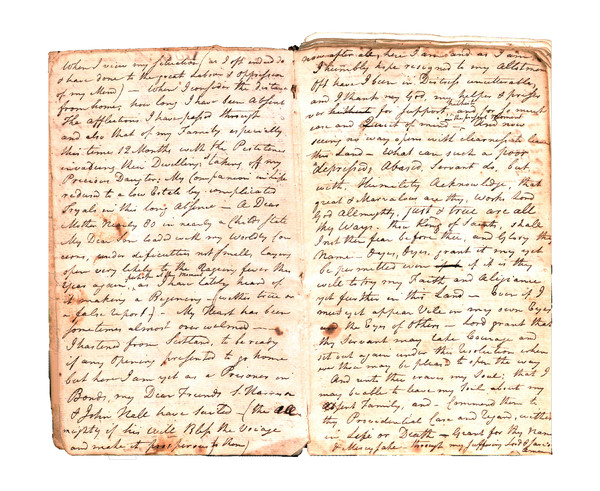 When I view my situation (as I oft and do
& have done to the great Labour & oppression
of my Mind) — When I consider the Distance
from home, how long I have been Absent
The afflictions I have passed through
and also that of my Family especially
this time 12 Months with the Pestilence
invading their Dwelling, taking off my
Precious Daughter; My Companion in life
reduced to a low Estate by complicated
Tryals in this long Absence — A Dear
Mother Nearly 80 in nearly a Childish State
My Dear Son loaded with my Worldly Con
cerns, under difficulties not small, laying
open very likely to the Rageing fever this
Year again, as I have lately heard of
its making a Begining — (whether true or
a false report) — My Heart has been
sometimes almost overwelmed —
I hastened from Scotland, to be ready
if any Opening presented to go home
but here I am yet as a Prisoner in
Bonds, my Dear Friends S. Harrison
& John Hall have sailed — (the All
mighty if his Will Bless the Voiage
and make it prosperous to them)
now after all, here I am and as I am
I humbly hope resigned to my Allotment
Oft have I been in Distress unutterable
and I thank my God my helper & preser
ver hitherto for support, and for so much
ease and quiet of mind And now
seeing no way open with clearness to leave
this Land — What can such a poor
depressed, Abased, Servant do, but
with Humility Acknowledge, that
great & Marvelous are thy Works Lord
God Allmighty, just & true are all
thy Ways. thou King of Saints, shall
I not then fear before thee, and Glory thy
Name — Oyes, Oyes, grant it may ever
be permitted ever if it is thy
will to try my Faith and Alegiance
yet further in this Land — Even if I
must yet appear Vile in my own Eyes
and the Eyes of Others — Lord grant that
thy Servant may take Courage and
set out again under this Resolution when
ever thou may be pleased to open the way
And unto thee craves my Soul, that I
may be able to leave my Self about my
Family, and Commend them to
thy Providential Care and Regard, whether
in Life or Death — Grant for thy Name
& Mercy sake through my suffering Lord & Saviour
amen